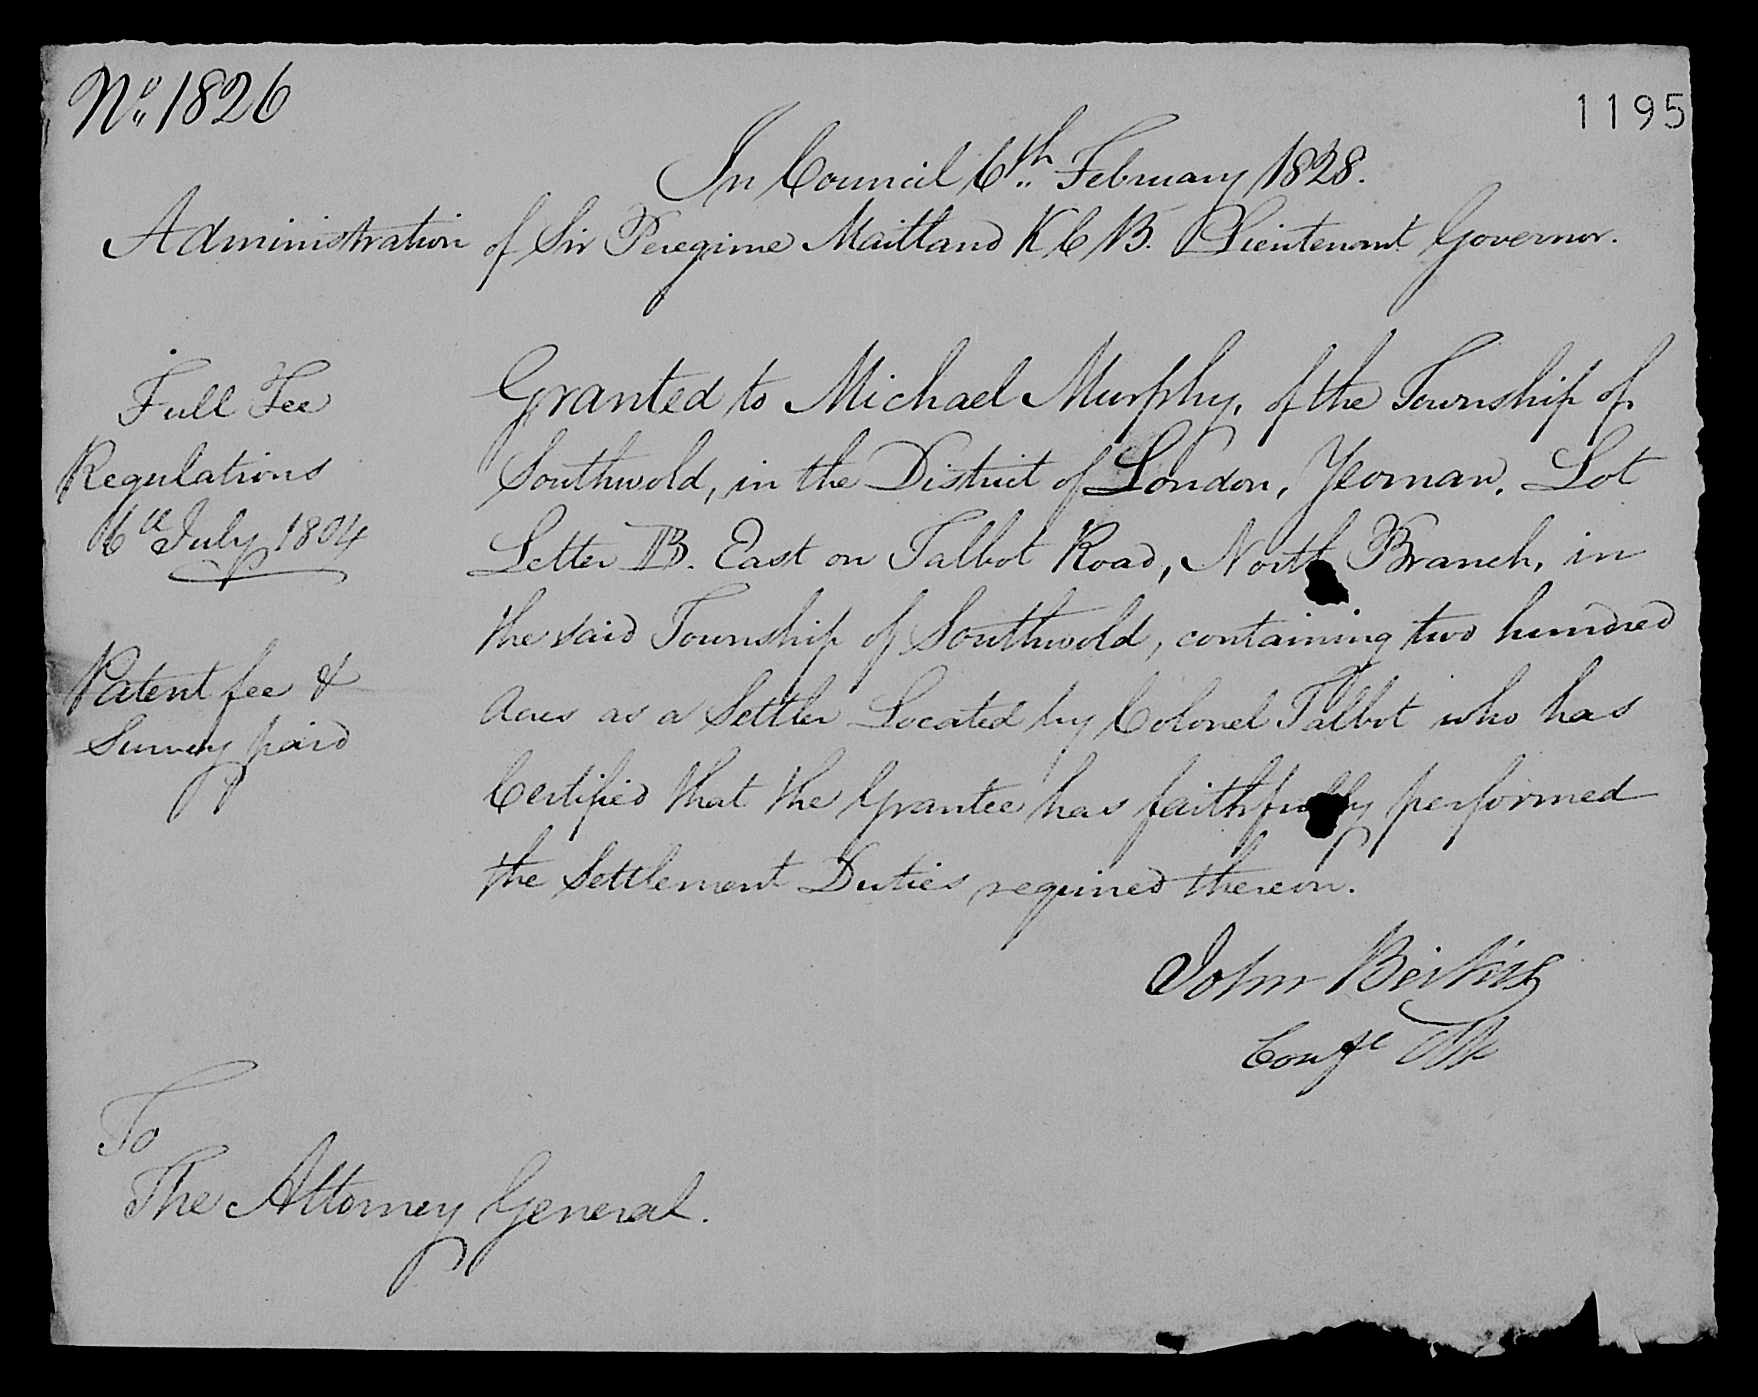 No. 1826
1195
In Council 6th February 1828.
Administration of Sir Peregrine Maitland K C B. Lieutenant Governor.
Full Fee
Regulations
6th July 1804
Patent fee &
Survey paid
Granted to Michael Murphy, of the Township of
Southwold, in the District of London, Yeoman, Lot
Letter B. East on Talbot Road, North Branch, in
the said Township of Southwold, containing two hundred
Acres as a Settler Located by Colonel Talbot who has
Certified that the Grantee has faithfully performed
the Settlement Duties required thereon.
John Beikie
To
The Attorney General.